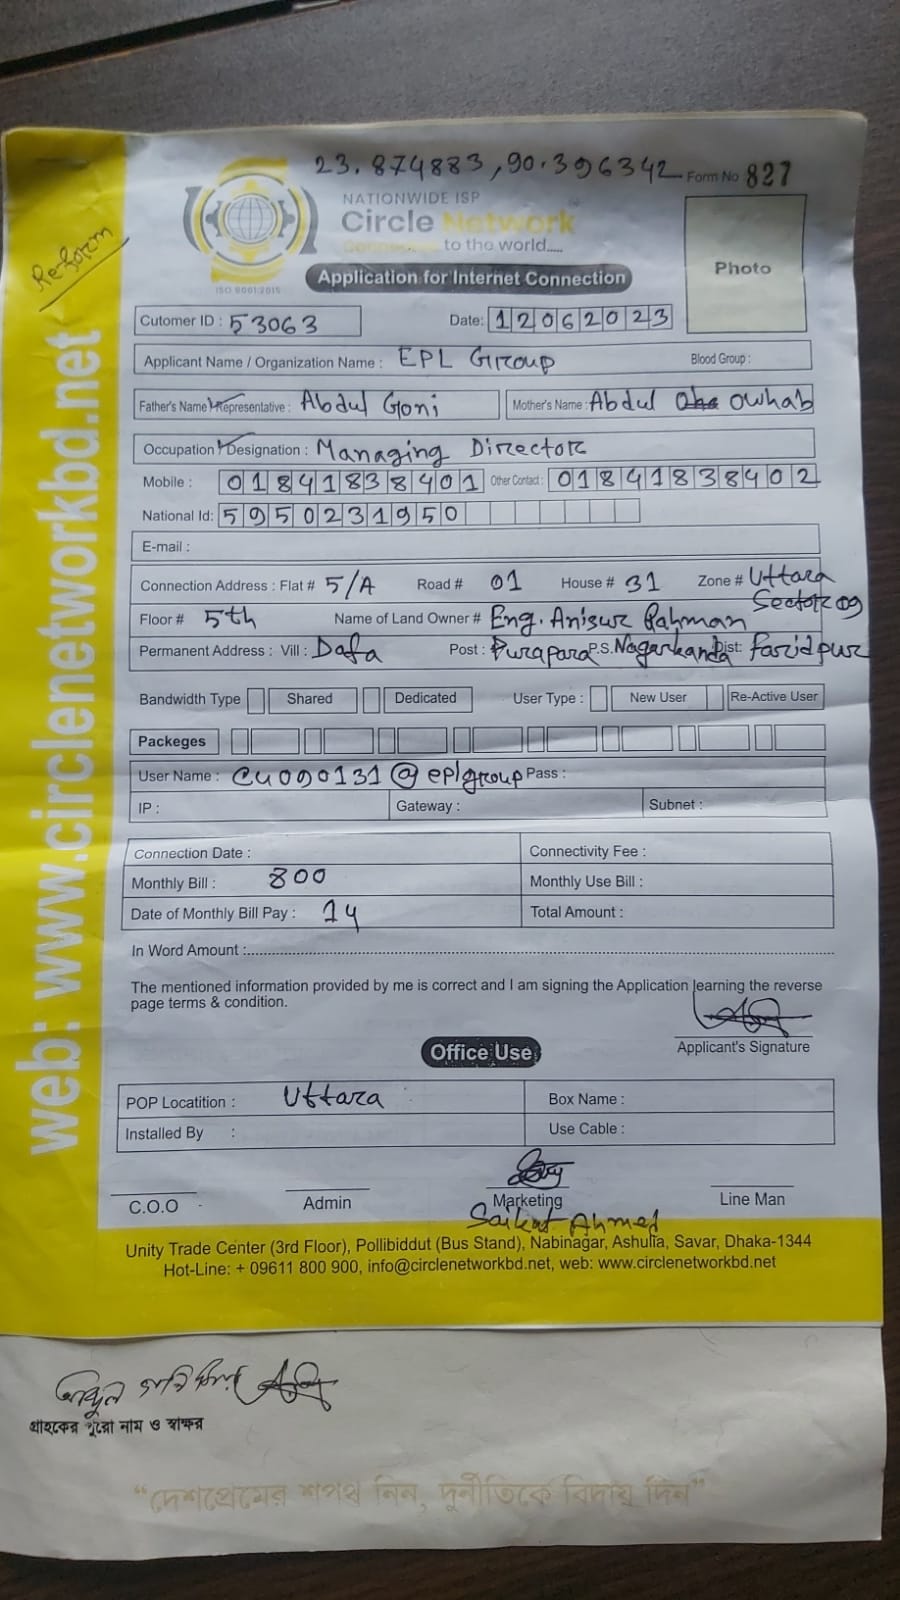 23.874883,90.396342
Form No 827
Reform
NATIONWIDE ISP
Circle Network
to the world.....
ISO 9001:2015
Photo
Application for Internet Connection
Cutomer ID : 53063
Date: 12062023
Applicant Name / Organization Name : EPL Group
Blood Group :
Father's Name / Representative : Abdul Goni
Mother's Name : Abdul Owhab
Occupation / Designation : Managing Director
Mobile : 01841838401 Other Contact : 01841838402
National Id: 5950231950
E-mail :
Connection Address : Flat # 5/A Road # 01 House # 31 Zone # Uttara Sector 09
Floor # 5th Name of Land Owner # Eng. Anisur Rahman
Permanent Address : Vill : Dafa Post : Purapara P.S. Nagarkanda Dist: Faridpur
Bandwidth Type Shared Dedicated User Type : New User Re-Active User
Packeges
User Name : cu090131@eplgroup Pass :
IP : Gateway : Subnet :
Connection Date : Connectivity Fee :
Monthly Bill : 800 Monthly Use Bill :
Date of Monthly Bill Pay : 14 Total Amount :
In Word Amount :
The mentioned information provided by me is correct and I am signing the Application learning the reverse
page terms & condition.
Applicant's Signature
Office Use
POP Locatition : Uttara Box Name :
Installed By : Use Cable :
C.O.O Admin Marketing Line Man
Saikat Ahmed
Unity Trade Center (3rd Floor), Pollibiddut (Bus Stand), Nabinagar, Ashulia, Savar, Dhaka-1344
Hot-Line: + 09611 800 900, info@circlenetworkbd.net, web: www.circlenetworkbd.net
web: www.circlenetworkbd.net
গ্রাহকের পুরো নাম ও স্বাক্ষর
“দেশপ্রেমের শপথ নিন, দুর্নীতিকে বিদায় দিন”